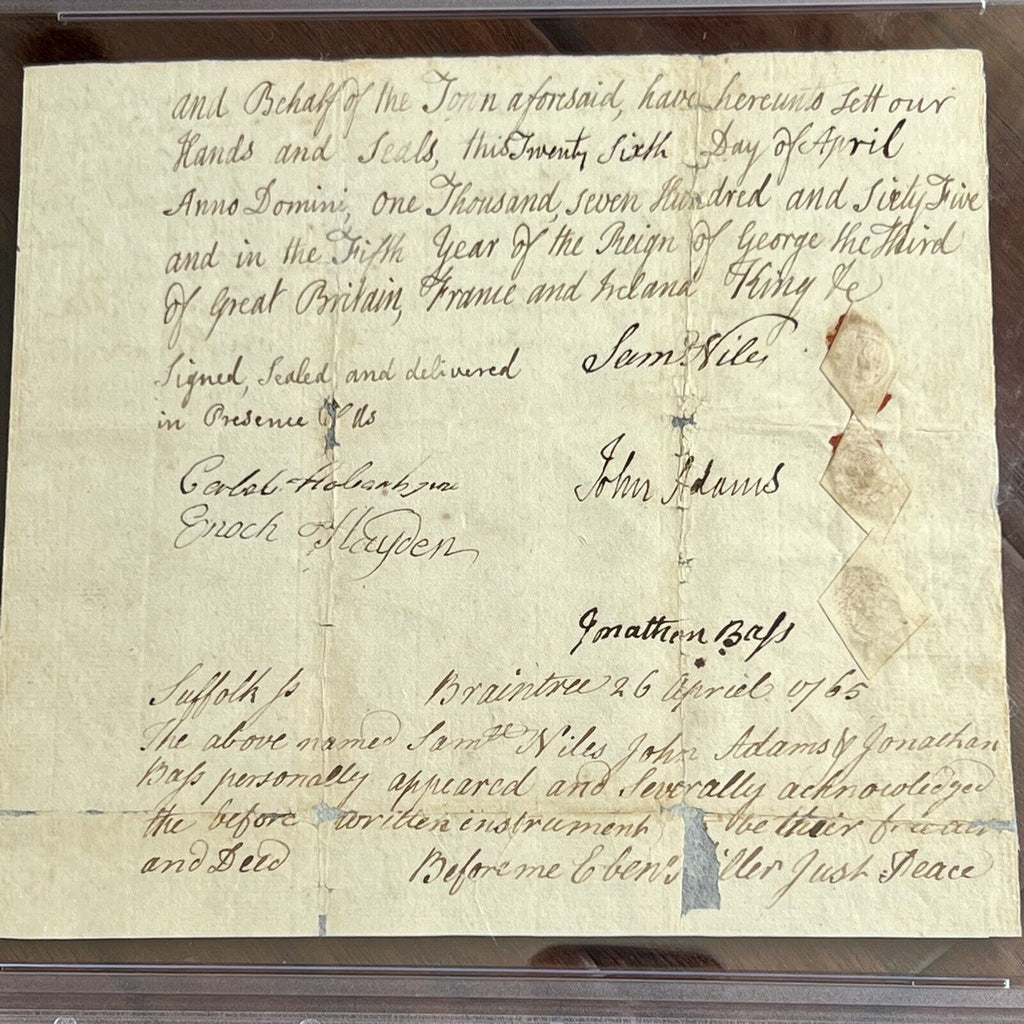 and Behalf of the Town aforesaid, have hereunto Sett our
Hands and Seals, this Twenty Sixth Day of April
Anno Domini, one Thousand, seven Hundred and Sixty Five
and in the Fifth Year of the Reign of George the Third
of Great Britain, France and Ireland King &c
Signed, Sealed and delivered
in Presence of Us
Saml Niles
John Adams
Caleb Hobart junr
Enoch Hayden
Jonathan Baſs
Suffolk ſs Braintree 26 April 1765
The above named Samll Niles John Adams & Jonathan
Baſs personally appeared and Severally acknowledged
the before written instrument be their free
and Deed Before me Ebenr iller Just Peace